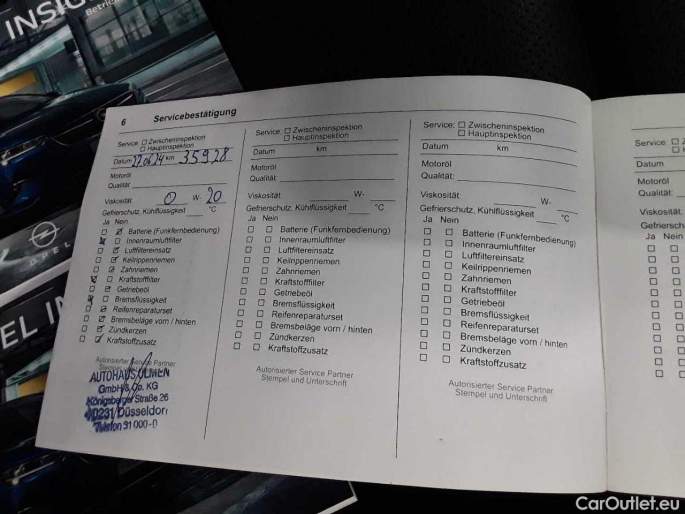 INSIG
Betrieb
OPEL
EL IN
6 Servicebestätigung
Service: Zwischeninspektion
Hauptinspektion
Datum 27.06.24 km 35928
Motoröl
Qualität:
Viskosität 0 W- 20
Gefrierschutz, Kühlflüssigkeit °C
Ja Nein
Batterie (Funkfernbedienung)
Innenraumluftfilter
Luftfiltereinsatz
Keilrippenriemen
Zahnriemen
Kraftstofffilter
Getriebeöl
Bremsflüssigkeit
Reifenreparaturset
Bremsbeläge vorn / hinten
Zündkerzen
Kraftstoffzusatz
Autorisierter Service Partner
AUTOHAUS ULMEN
GmbH & Co. KG
Königsberger Straße 26
40231 Düsseldorf
Telefon 91 000-0
Service: Zwischeninspektion
Hauptinspektion
Datum km
Motoröl
Qualität:
Viskosität W-
Gefrierschutz, Kühlflüssigkeit °C
Ja Nein
Batterie (Funkfernbedienung)
Innenraumluftfilter
Luftfiltereinsatz
Keilrippenriemen
Zahnriemen
Kraftstofffilter
Getriebeöl
Bremsflüssigkeit
Reifenreparaturset
Bremsbeläge vorn / hinten
Zündkerzen
Kraftstoffzusatz
Autorisierter Service Partner
Stempel und Unterschrift
Service: Zwischeninspektion
Hauptinspektion
Datum km
Motoröl
Qualität:
Viskosität W-
Gefrierschutz, Kühlflüssigkeit °C
Ja Nein
Batterie (Funkfernbedienung)
Innenraumluftfilter
Luftfiltereinsatz
Keilrippenriemen
Zahnriemen
Kraftstofffilter
Getriebeöl
Bremsflüssigkeit
Reifenreparaturset
Bremsbeläge vorn / hinten
Zündkerzen
Kraftstoffzusatz
Autorisierter Service Partner
Stempel und Unterschrift
Service:
Datum
Motoröl
Qualität:
Viskosität
Gefriersch
Ja Nein
CarOutlet.eu